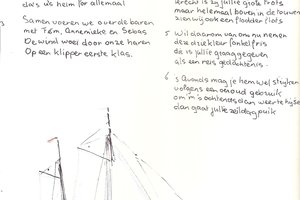 dat is heim for allemaal
Samen voeren we over de baren
met Fem, Annenieke en Sebas
De wind woei door onze haren
Op een klipper eerste klas.
terecht is zij jullie grote trots
maar helemaal boven in de touwen
zien wij ook een flodder flots
5 Wil daarom van ons nu nemen
deze driekleur
de is jullie graag gegeven
als een reis gedachtenis.
6 's Avonds mag je hem wel strijken
volgens een oud gebruik
om 'm 's ochtends dan weer te hijsen
dan gaat jullie zeildag puik